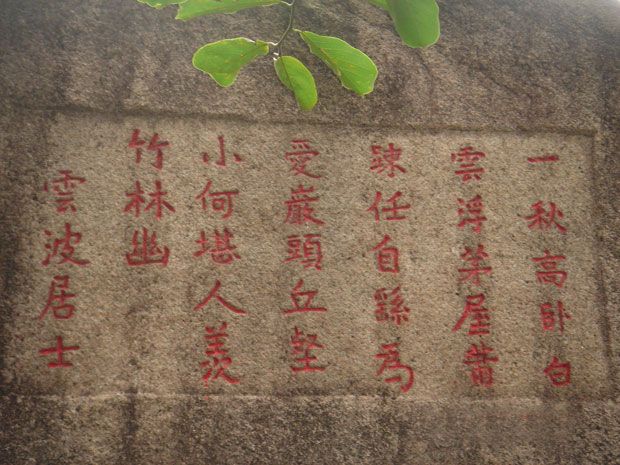 一秋高卧白
雲浮茅屋蕭
踈任自繇為
愛巖頭丘壑
小何堪人羨
竹林幽
雲波居士